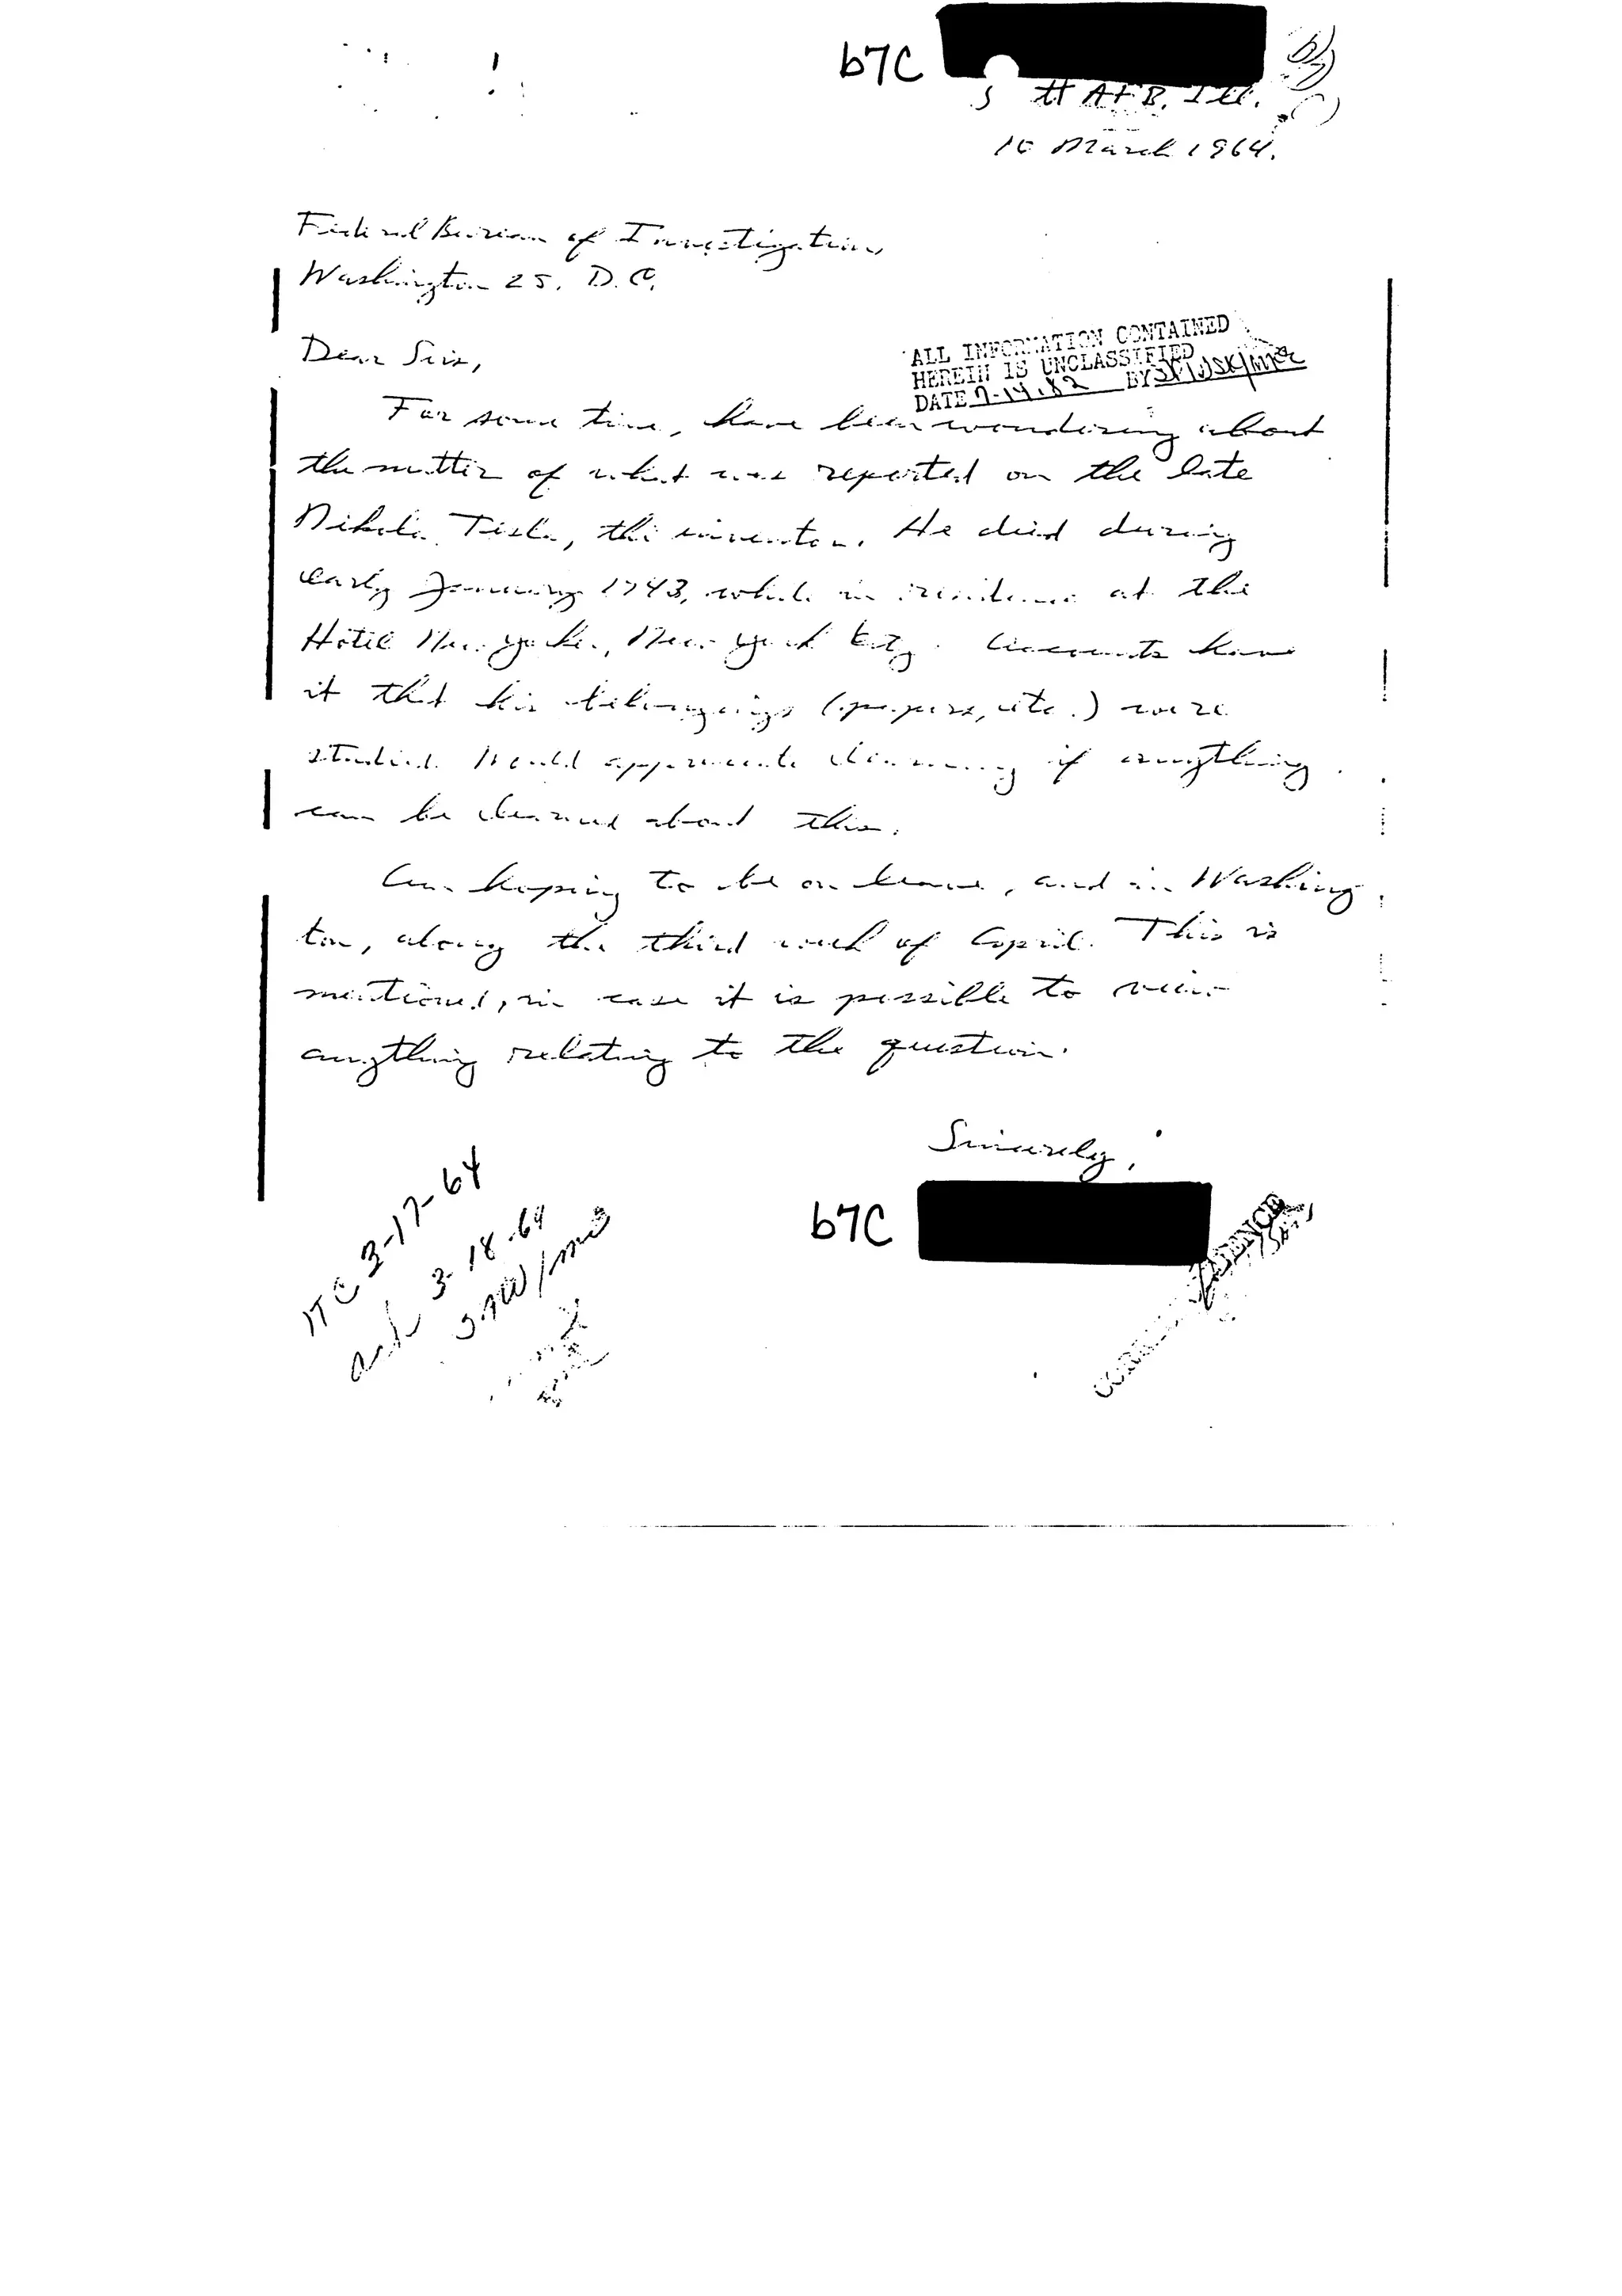 b7C
AFB, Ill.
March 1964.
Federal Bureau of Investigation,
Washington 25, D.C.
Dear Sirs,
ALL INFORMATION CONTAINED
HEREIN IS UNCLASSIFIED
DATE 7-14-82 BY
For some time, have been wondering about
the matter of what was reported on the late
Nikola Tesla, the inventor. He died during
early January 1943, while in residence at the
Hotel New Yorker, New York City. Accounts have
it that his belongings (papers, etc.) were
studied. Would appreciate learning if anything
can be learned about this.
Am hoping to be on leave, and in Washing
ton, along the third week of April. This is
mentioned, in case it is possible to view
anything relating to the question.
Sincerely,
b7C
3-17-64
ack 3-18-64